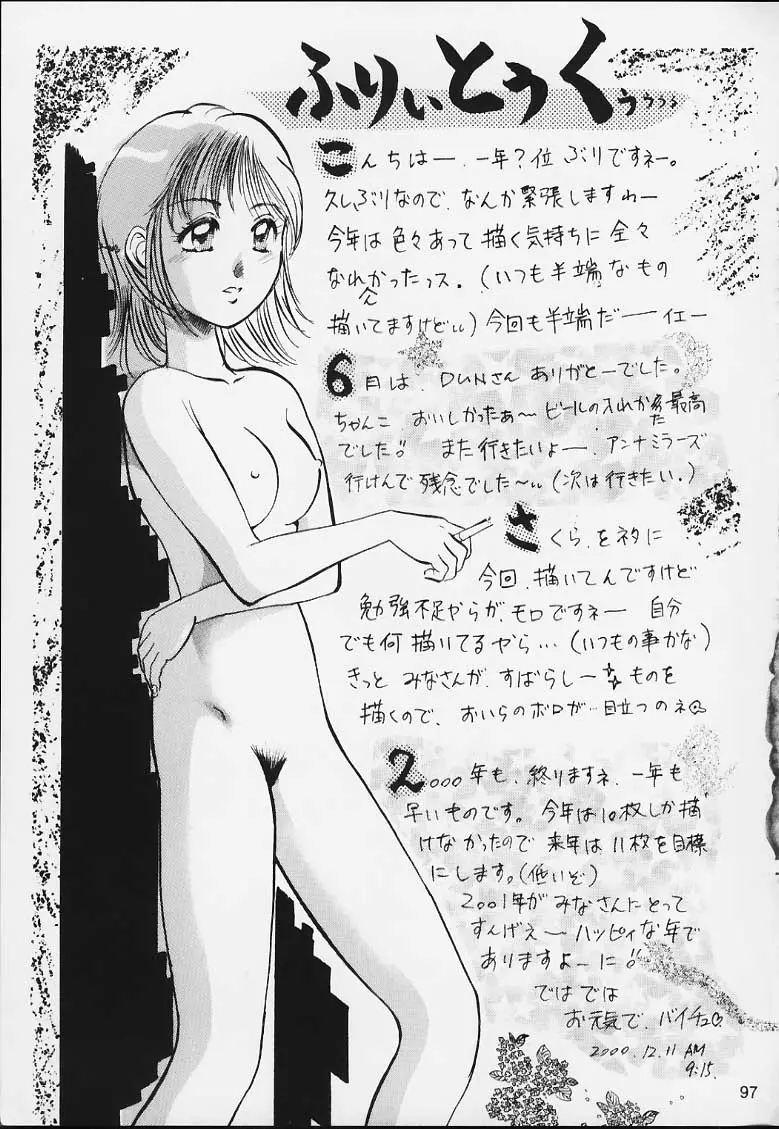 ふりぃとぅくぅぅぅぅ
こんちは一. 一年?位 ぶりですネー。
久しぶりなので、なんか緊張しますわー
今年は色々あって描く気持ちに全々
なれなかったっス。(いつも半端なもの
描いてますけど〃)今回も半端だ――イエー
6月は、DUNさんありがとーでした。
ちゃんこ おいしかったぁ～ ビールの入れかた最高
でした!! また行きたいよー、アンナミラーズ
行けんで残念でした～〃(次は行きたい。)
さくら、をネタに
今回、描いてんですけど
勉強不足やらが、モロですネー 自分
でも何描いてるやら…(いつもの事かな)
きっと みなさんが、すばらしーもの を
描くので、おいらのボロが…目立つのネ
2000年も、終りますネ、一年も
早いものです。今年は10枚しか描
けなかったので 来年は11枚を目標
にします。(低いぞ)
2001年がみなさんにとって
すんげえ～ハッピィな年で
ありますよーに!!
ではでは
お元気で、バイチュ♡
2000.12.11 AM
9:15.
97